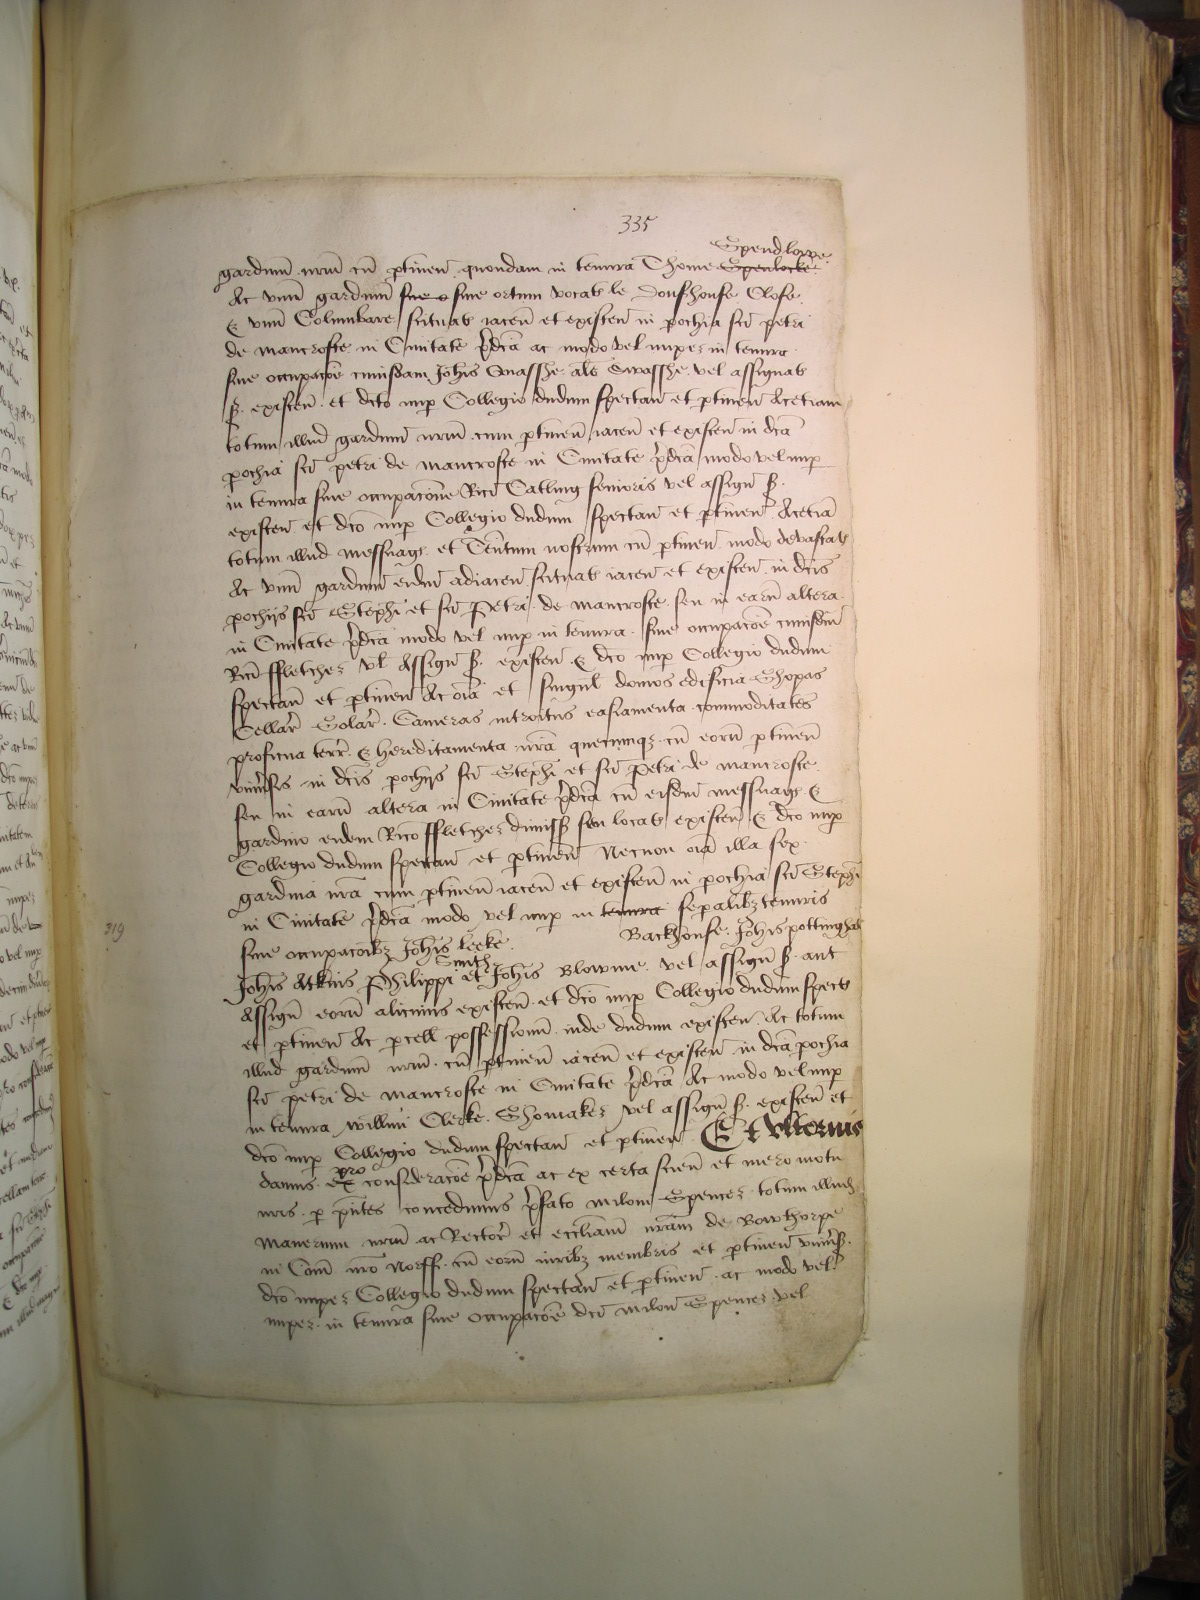 335
Spendlowe
gardinū nrm̄ cū ptineñ quondam in tenura Thome Spenlocke
Ac vnū gardinū siue o siue ortum vocat le Doufhouse Close
& vnū Columbare scituat iaceñ et existeñ in pochia scī petri
de mancrofte in Ciuitate p̄dcā ac modo vel nuper in tenura
siue occupac̄oē cuiusdam Johīs Quasshe al̄s Swasshe vel assignat
š existeñ et dc̄o nup Collegio dudum spectañ et ptineñ Acetiam
totum illud gardinū nrm̄ cum ptineñ iaceñ et existeñ in dc̄ā
pochia scī petri de mancrofte in Ciuitate p̄dcā modo vel nup
in tenura siue occupacōne Ricī Catling senioris vel assigñ š
existeñ et dc̄o nup Collegio dudum spectañ et ptineñ Acetiā
totum illud messuag et Teñtum nostrum cū ptineñ modo devastat
Ac vnū gardinū eidm̄ adiaceñ scituat iaceñ et existeñ in dc̄is
pochijs scī Stephī et scī Petri de mancrofte seu in earū altera
in Ciuitate p̄dcā modo vel nup in tenura siue occupac̄oē cuiusdm̄
Ricī ffletcher vl̄ Assigñ š existeñ & dc̄o nup Collegio dudum
spectañ et ptineñ Ac oīa et singul̄ domos edificia Shopas
Cellar̄ Solar̄ Cameras introitus easiamenta commoditates
proficua terr̄ & hereditamenta nrā quecumqz cū eorū ptineñ
vniu̇sis in dc̄is pochijs scī Stephī et scī Petri de mancrofte
seu in earū altera in Ciuitate p̄dcā cū eisdm̄ messuag &
gardino eidem Ricō ffletcher dimiss̄ seu locat existeñ & dc̄o nup
Collegio dudum spectañ et ptineñ Necnon oīa illa sex
gardina nrā cum ptineñ iaceñ et existeñ in pochia scī Stephī
in Ciuitate p̄dcā modo vel nup in tenura sepalibz tenuris
319
siue occupacōibz Johīs Leeke Backhouse Johīs pottingħ
Smith
Johīs Atkins Philippi et Johīs Blowme vel assigñ š aut
Assigñ eorū alicuius existeñ et dc̄o nup Collegio dudum spect
et ptineñ Ac pcell possessionū inde dudum existeñ Ac totum
illud gardinū nrm̄ cū ptineñ iaceñ et existeñ in dc̄ā pochia
scī petri de mancrofte in Ciuitate p̄dcā Ac modo vel nup
in tenura Willmī Clerke Shomaker vel assigñ š existeñ et
dc̄o nup Collegio dudum spectañ et ptineñ Et vlterius
pro
damus ex consideracōe p̄dcā ac ex certa scieñ et mero motu
nris p p̄ntes concedimus p̄fato miloni Spencer totum illud
Manerium nrm̄ ac Rector̄ et eccliam̄ nram̄ de Bowthorpe
in Com̄ nrō Norff cū eorū iuribz membris et ptineñ vniu̇s̄
dc̄o nuper Collegio dudum spectañ et ptineñ ac modo vel
nuper in tenura siue occupacōē dc̄i miloñ Spencer vel